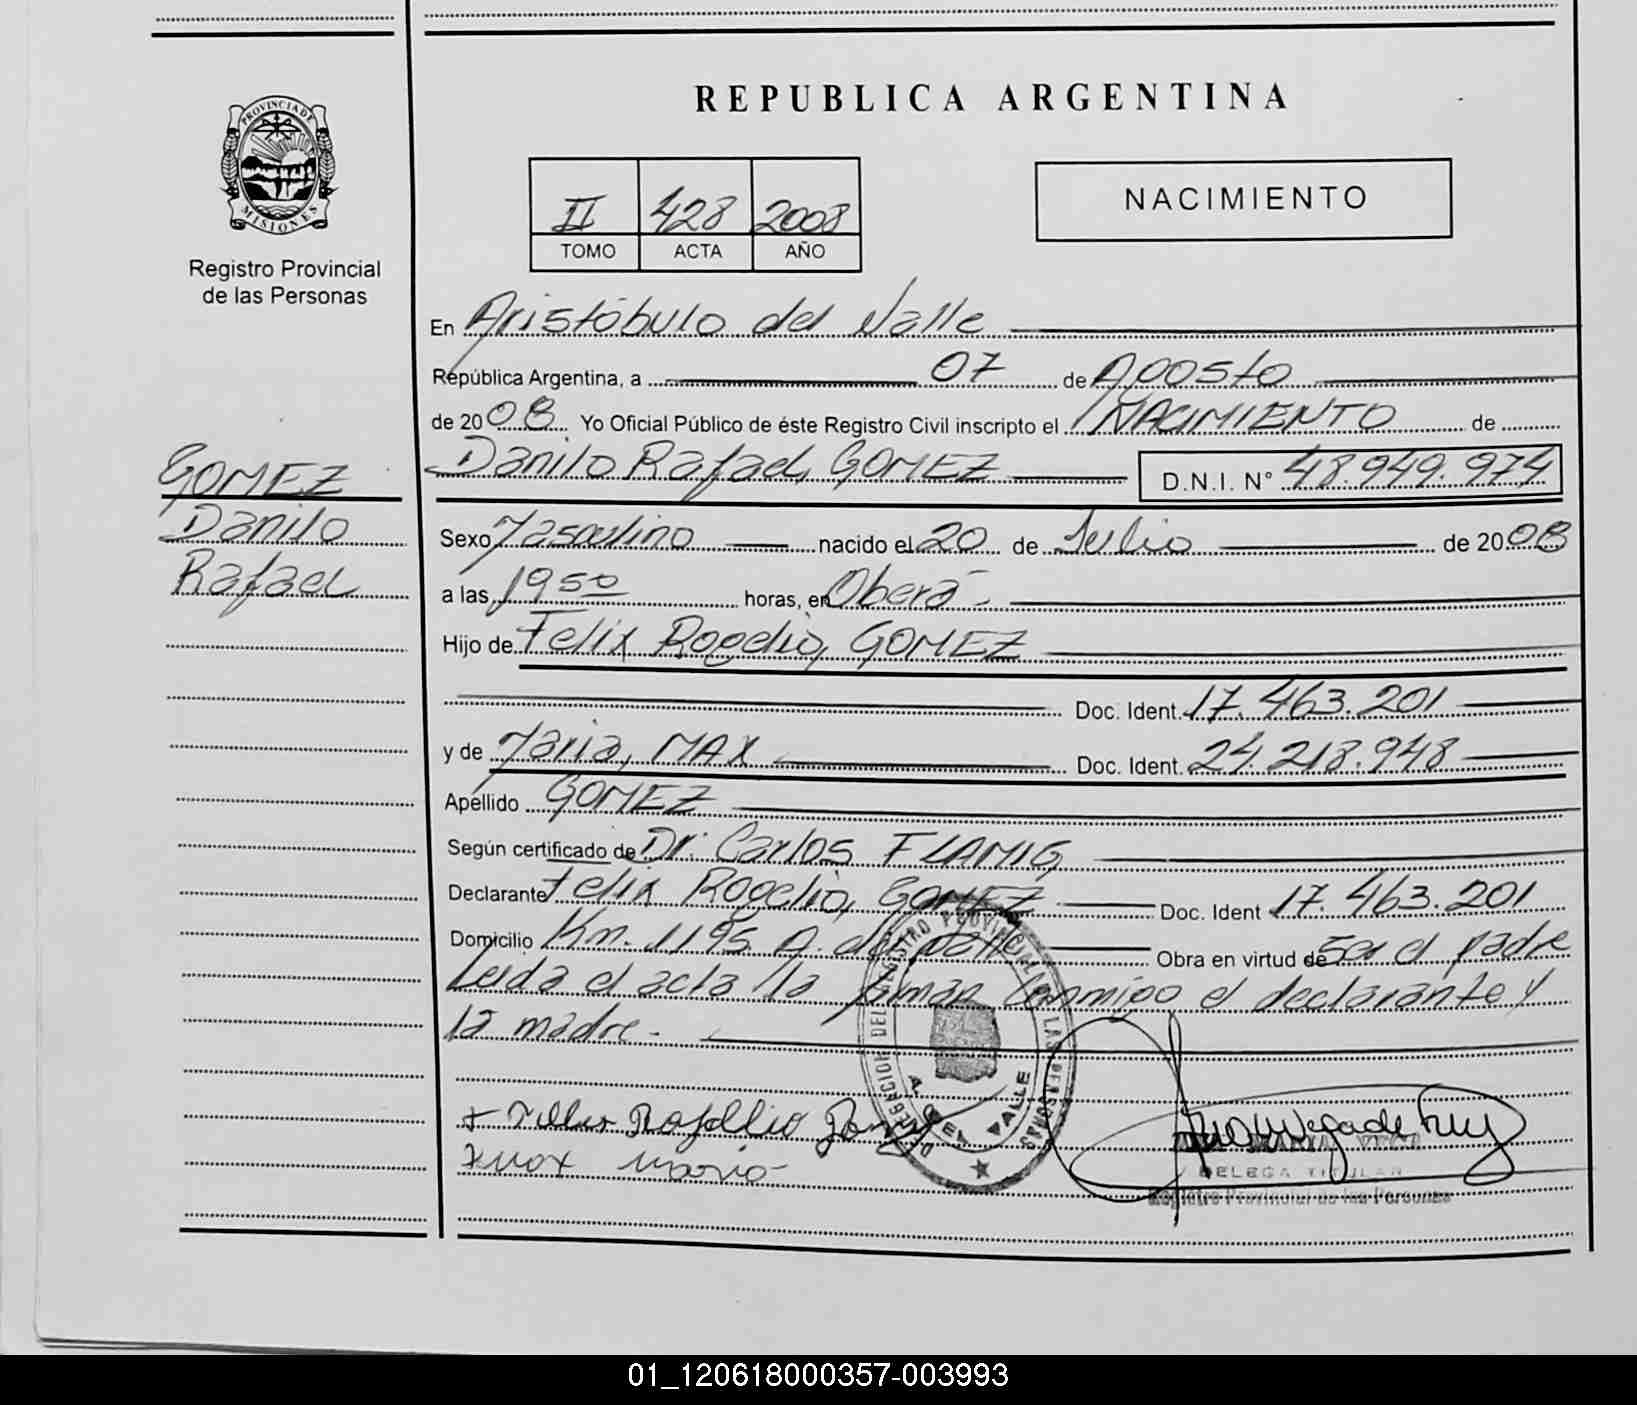 REPUBLICA ARGENTINA
PROVINCIA DE MISIONES
Registro Provincial
de las Personas
II 428 2008
TOMO ACTA AÑO
NACIMIENTO
En Aristóbulo del Valle
República Argentina, a 07 de Agosto
de 2008 Yo Oficial Público de éste Registro Civil inscripto el NACIMIENTO de
Danilo Rafael, GOMEZ D.N.I. N° 48.949.974
GOMEZ
Danilo
Rafael
Sexo Masculino nacido el 20 de Julio de 2008
a las 19 50 horas, en Oberá.
Hijo de Felix Rogelio, GOMEZ
Doc. Ident. 17.463.201
y de Maria, MAX Doc. Ident. 24.218.948
Apellido GOMEZ
Según certificado de Dr. Carlos FLAMIG
Declarante Felix Rogelio, GOMEZ Doc. Ident 17.463.201
Domicilio Km. 1195 A. del Valle Obra en virtud de Ser el padre
Leida el acta la firman conmigo el declarante y
la madre.
DELEGACION DEL REGISTRO PROVINCIAL DE LAS PERSONAS
A. DEL VALLE
DELEGA TITULAR
Registro Provincial de las Personas
01_120618000357-003993